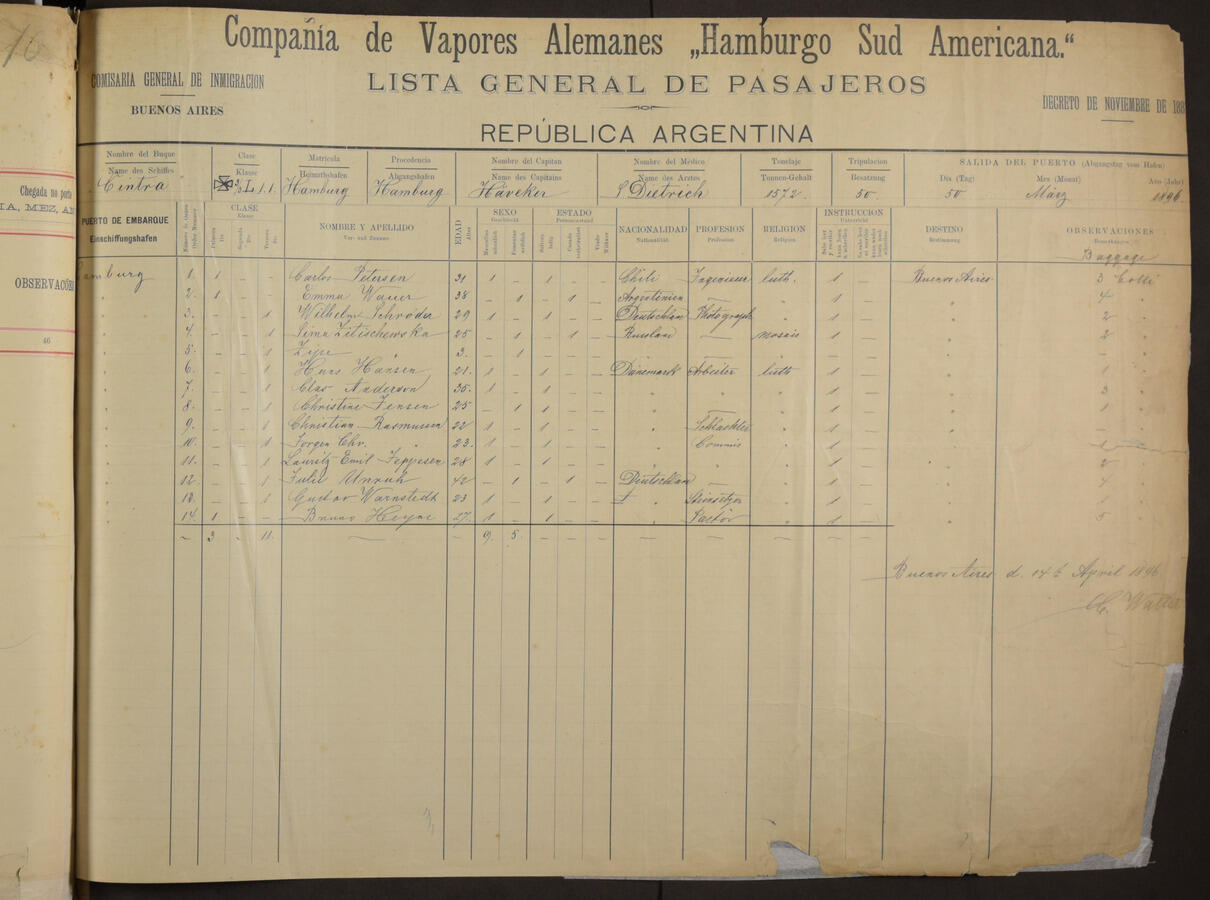 Compañia de Vapores Alemanes „Hamburgo Sud Americana.“
COMISARIA GENERAL DE INMIGRACION
BUENOS AIRES
LISTA GENERAL DE PASAJEROS
DECRETO DE NOVIEMBRE DE 188
REPÚBLICA ARGENTINA
Nombre del Buque Clase Matricula Procedencia Nombre del Capitan Nombre del Médico Tonelaje Tripulacion SALIDA DEL PUERTO (Abgangstag vom Hafen)
Name des Schiffes Klasse Heimathshafen Abgangshafen Name des Capitains Name des Arztes Tonnen-Gehalt Besatzung Dia (Tag) Mes (Monat) Año (Jahr)
Cintra L 1.1. Hamburg Hamburg Häveker Dietrich 1572 50 März 1896
Chegada no porto
IA, MEZ, AN
OBSERVACÕE
46
PUERTO DE EMBARQUE
Einschiffungshafen
CLASE
Klasse
NOMBRE Y APELLIDO
Vor- und Zuname
EDAD
Alter
SEXO
Geschlecht
ESTADO
Personenstand
NACIONALIDAD
Nationalität
PROFESION
Profession
RELIGION
Religion
INSTRUCCION
Unterricht
DESTINO
Bestimmung
OBSERVACIONES
Bemerkungen
Baggage
Hamburg 1. 1 – – Carlos Petersen 31 1 – 1 – – Chili Ingenieur luth. 1 – Buenos Aires 3 Colli
" 2. 1 – – Emma Wauer 38 – 1 – 1 – Argentinien — " 1 – " 4 "
" 3. – – 1 Wilhelm Schröder 29 1 – 1 – – Deutschlan Photograph " 1 – " 2 "
" 4. – – 1 25 – 1 – 1 – Russland — mosais 1 – " 2 "
" 5. – – 3. – 1 –
" 6. – – 1 Hans Hansen 21. 1 – 1 – – Dänemark Arbeiter luth 1 – " 1 "
" 7. – – 1 Clas Anderson 35. 1 – 1 – – " " " 1 – " 3 "
" 8. – – 1 Christine Jensen 25 – 1 1 – – " — " 1 – " 1 "
" 9. – – 1 Christian Rasmussen 22 1 – 1 – – " " 1 – " 1 "
" 10. – – 1 Jorgen Chr. " 23. 1 – 1 – – " Commis " 1 – " 1
" 11. – – 1 Lauritz Emil Jeppesen 28 1 – 1 – – " " " 1 – " 2 "
" 12. – – 1 Julie Unruh 42 – 1 – 1 – Deutschlan — " 1 – " 4 "
" 13. – – 1 Gustav Warnstedt 23 1 – 1 – – " Steinsetzer " 1 – " 1 "
" 14. 1 – – Bruno Heyne 27. 1 – 1 – – " Pastor " 1 – " 5 "
– 3 – 11. — – 9. 5.
Buenos Aires d. 14t April 1896